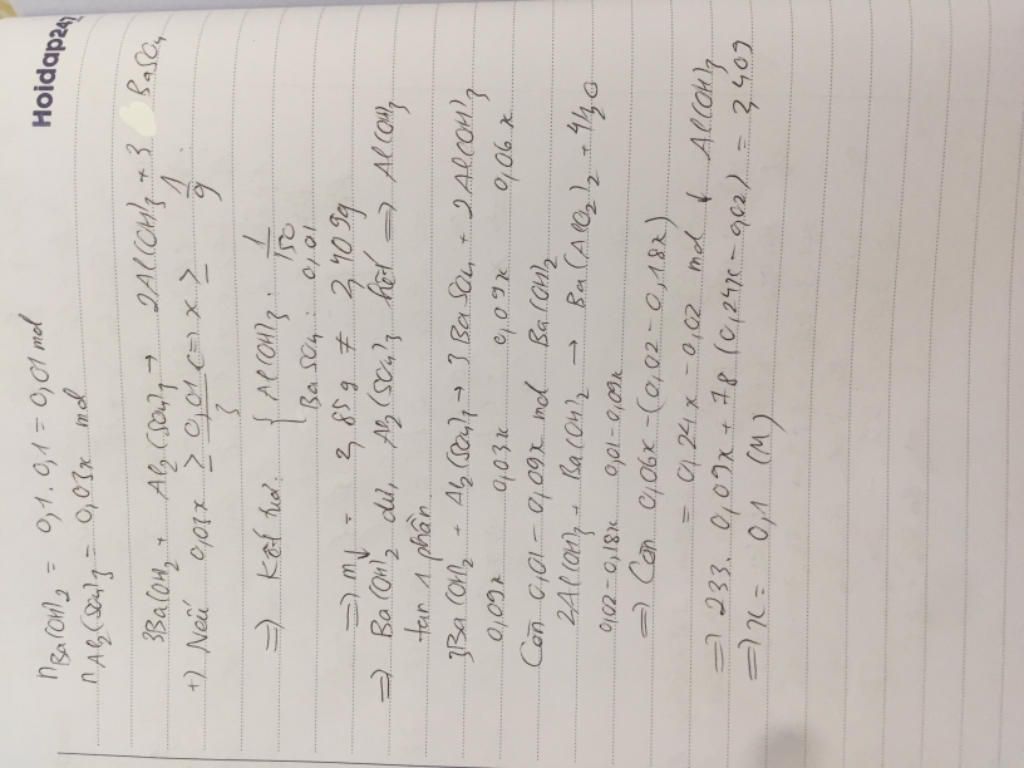 Hoidap247
nBa(OH)2 = 0,1 . 0,1 = 0,01 mol
nAl2(SO4)3 = 0,03x mol
3Ba(OH)2 + Al2(SO4)3 → 2Al(OH)3 + 3 BaSO4
+) Nếu 0,03x ≥ 0,01/3 (=) x ≥ 1/9 .
=) Kết tủa { Al(OH)3 : 1/150
BaSO4 : 0,01
=) m↓ = 2,85g ≠ 2,409g
=) Ba(OH)2 dư, Al2(SO4)3 hết =) Al(OH)3
tan 1 phần.
3Ba(OH)2 + Al2(SO4)3 → 3BaSO4 + 2Al(OH)3
0,09x 0,03x 0,09x 0,06x
Còn 0,01 - 0,09x mol Ba(OH)2
2Al(OH)3 + Ba(OH)2 → Ba(AlO2)2 + 4H2O
0,02-0,18x 0,01-0,09x
=) Còn 0,06x - (0,02 - 0,18x)
= 0,24x - 0,02 mol ↓ Al(OH)3
=) 233. 0,09x + 78 (0,24x - 0,02) = 2,409
=) x = 0,1 (M)